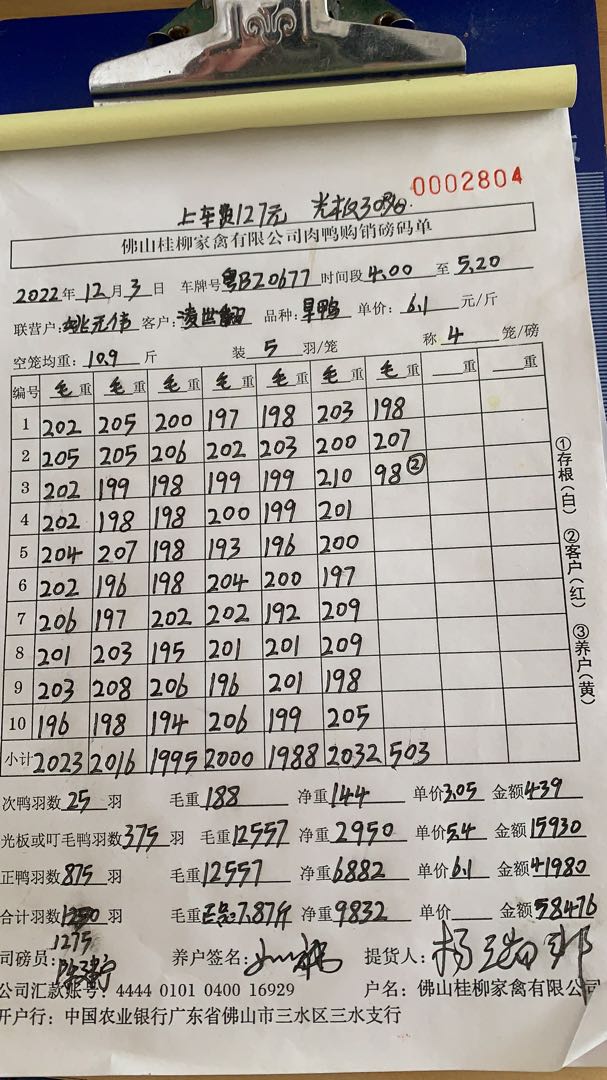 0002804
上车费127元 光板30%
佛山桂柳家禽有限公司肉鸭购销磅码单
2022年12月3日 车牌号粤BZ0677 时间段4.00至5.20
联营户:姚元伟 客户:凌世 品种:旱鸭 单价:6.1元/斤
空笼均重:10.9斤 装5羽/笼 称4笼/磅
编号 毛重 毛重 毛重 毛重 毛重 毛重 毛重 重 重
1 202 205 200 197 198 203 198
2 205 205 206 202 203 200 207
3 202 199 198 199 199 210 98②
4 202 198 198 200 199 201
5 204 207 198 193 196 200
6 202 196 198 204 200 197
7 206 197 202 202 192 209
8 201 203 195 201 201 209
9 203 208 206 196 201 198
10 196 198 194 206 199 205
小计 2023 2016 1995 2000 1988 2032 503
①存根(白) ②客户(红) ③养户(黄)
次鸭羽数25羽 毛重188 净重144 单价3.05 金额439
光板或叮毛鸭羽数375羽 毛重12557 净重2950 单价5.4 金额15930
正鸭羽数875羽 毛重12557 净重6882 单价6.1 金额41980
合计羽数羽 毛重7.87斤 净重9832 单价 金额58476
1275
司磅员: 养户签名: 提货人:杨
公司汇款账号:4444 0101 0400 16929 户名:佛山桂柳家禽有限公司
开户行:中国农业银行广东省佛山市三水区三水支行